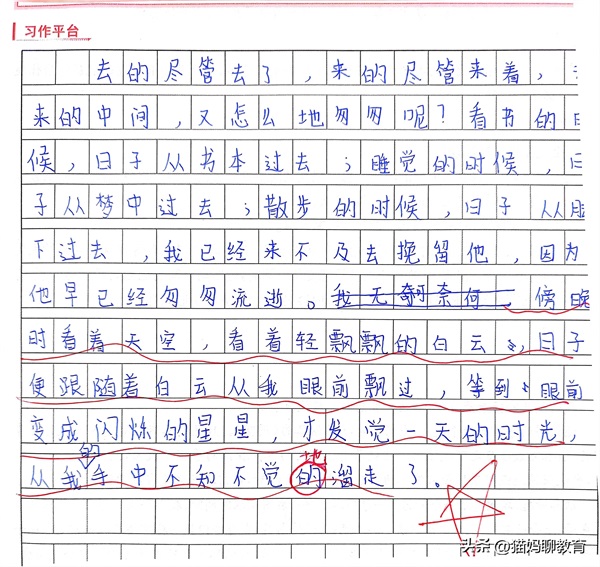 习作平台
去的尽管去了，来的尽管来着，
来的中间，又怎么地匆匆呢？看书的
候，日子从书本过去；睡觉的时候，
子从梦中过去；散步的时候，日子从
下过去，我已经来不及去挽留他，因为
他早已经匆匆流逝。我无奈何 傍晚
时看着天空，看着轻飘飘的白云，日子
便跟随着白云从我眼前飘过，等到眼前
变成闪烁的星星，才发觉一天的时光，
的 地
从我手中不知不觉的溜走了。
头条 @猫妈聊教育